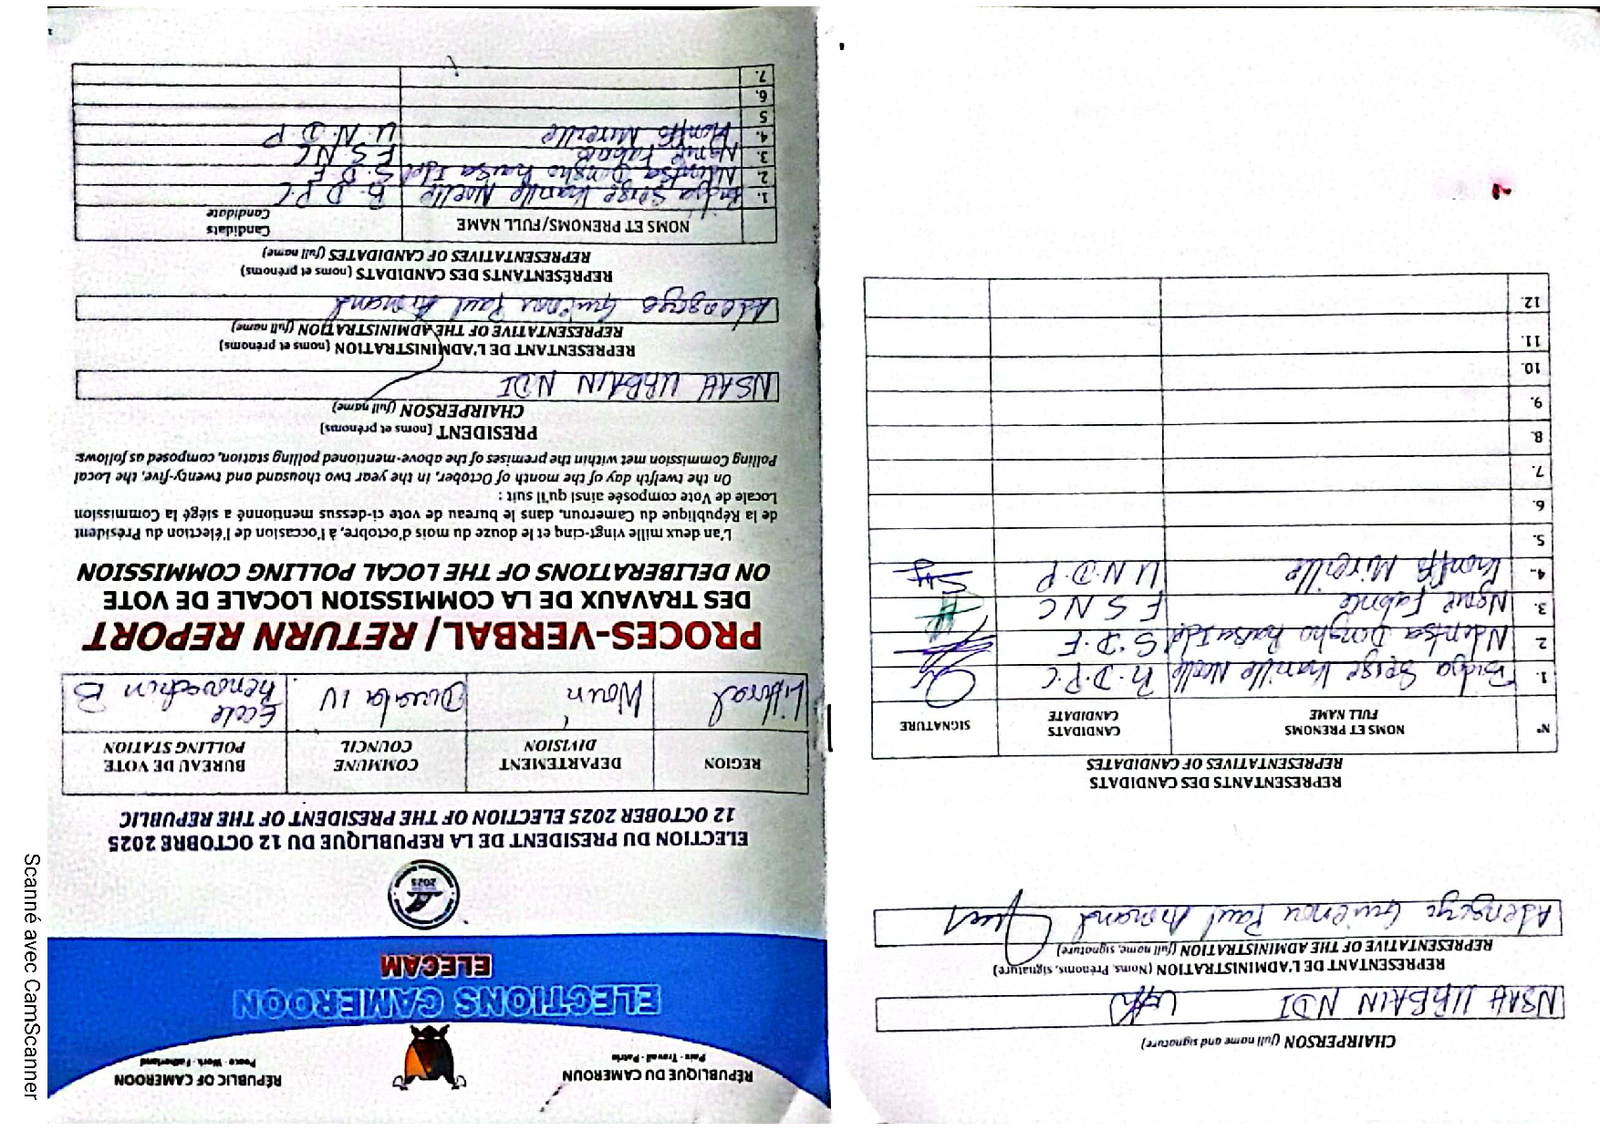 RÉPUBLIQUE DU CAMEROUN
Paix - Travail - Patrie
RÉPUBLIC OF CAMEROON
Peace - Work - Fatherland
ELECTIONS CAMEROON
ELECAM
2025
ELECTION DU PRESIDENT DE LA REPUBLIQUE DU 12 OCTOBRE 2025
12 OCTOBER 2025 ELECTION OF THE PRESIDENT OF THE REPUBLIC
REGION
DEPARTEMENT
DIVISION
COMMUNE
COUNCIL
BUREAU DE VOTE
POLLING STATION
Littoral
Wouri
Douala IV
Ecole
B
PROCES-VERBAL / RETURN REPORT
DES TRAVAUX DE LA COMMISSION LOCALE DE VOTE
ON DELIBERATIONS OF THE LOCAL POLLING COMMISSION
L'an deux mille vingt-cinq et le douze du mois d'octobre, à l'occasion de l'élection du Président
de la République du Cameroun, dans le bureau de vote ci-dessus mentionné a siégé la Commission
Locale de Vote composée ainsi qu'il suit :
On the twelfth day of the month of October, in the year two thousand and twenty-five, the Local
Polling Commission met within the premises of the above-mentioned polling station, composed as follows:
PRESIDENT (noms et prénoms)
CHAIRPERSON (full name)
NSAH URBAIN NDI
REPRESENTANT DE L'ADMINISTRATION (noms et prénoms)
REPRESENTATIVE OF THE ADMINISTRATION (full name)
Paul Armand
REPRÉSENTANTS DES CANDIDATS (noms et prénoms)
REPRESENTATIVES OF CANDIDATES (full name)
NOMS ET PRENOMS/FULL NAME
Candidats
Candidate
1. Serge Noelle R.D.P.C
2. Ndentsa Dongho S.D.F
3. Ngne Fabrice F S N C
4. Mireille U.N.D.P
5
6.
7.
CHAIRPERSON (full name and signature)
NSAH URBAIN NDI
REPRESENTANT DE L'ADMINISTRATION (Noms, Prénoms, signature)
REPRESENTATIVE OF THE ADMINISTRATION (full name, signature)
Paul Armand
REPRESENTANTS DES CANDIDATS
REPRESENTATIVES OF CANDIDATES
N° NOMS ET PRENOMS
FULL NAME
CANDIDATS
CANDIDATE
SIGNATURE
1. Serge Noelle R.D.P.C
2 Ndentsa Dongho S.D.F
3. Fabrice F S N C
4. Mireille U N.D.P
5.
6.
7.
8.
9.
10.
11.
12.
Scanné avec CamScanner